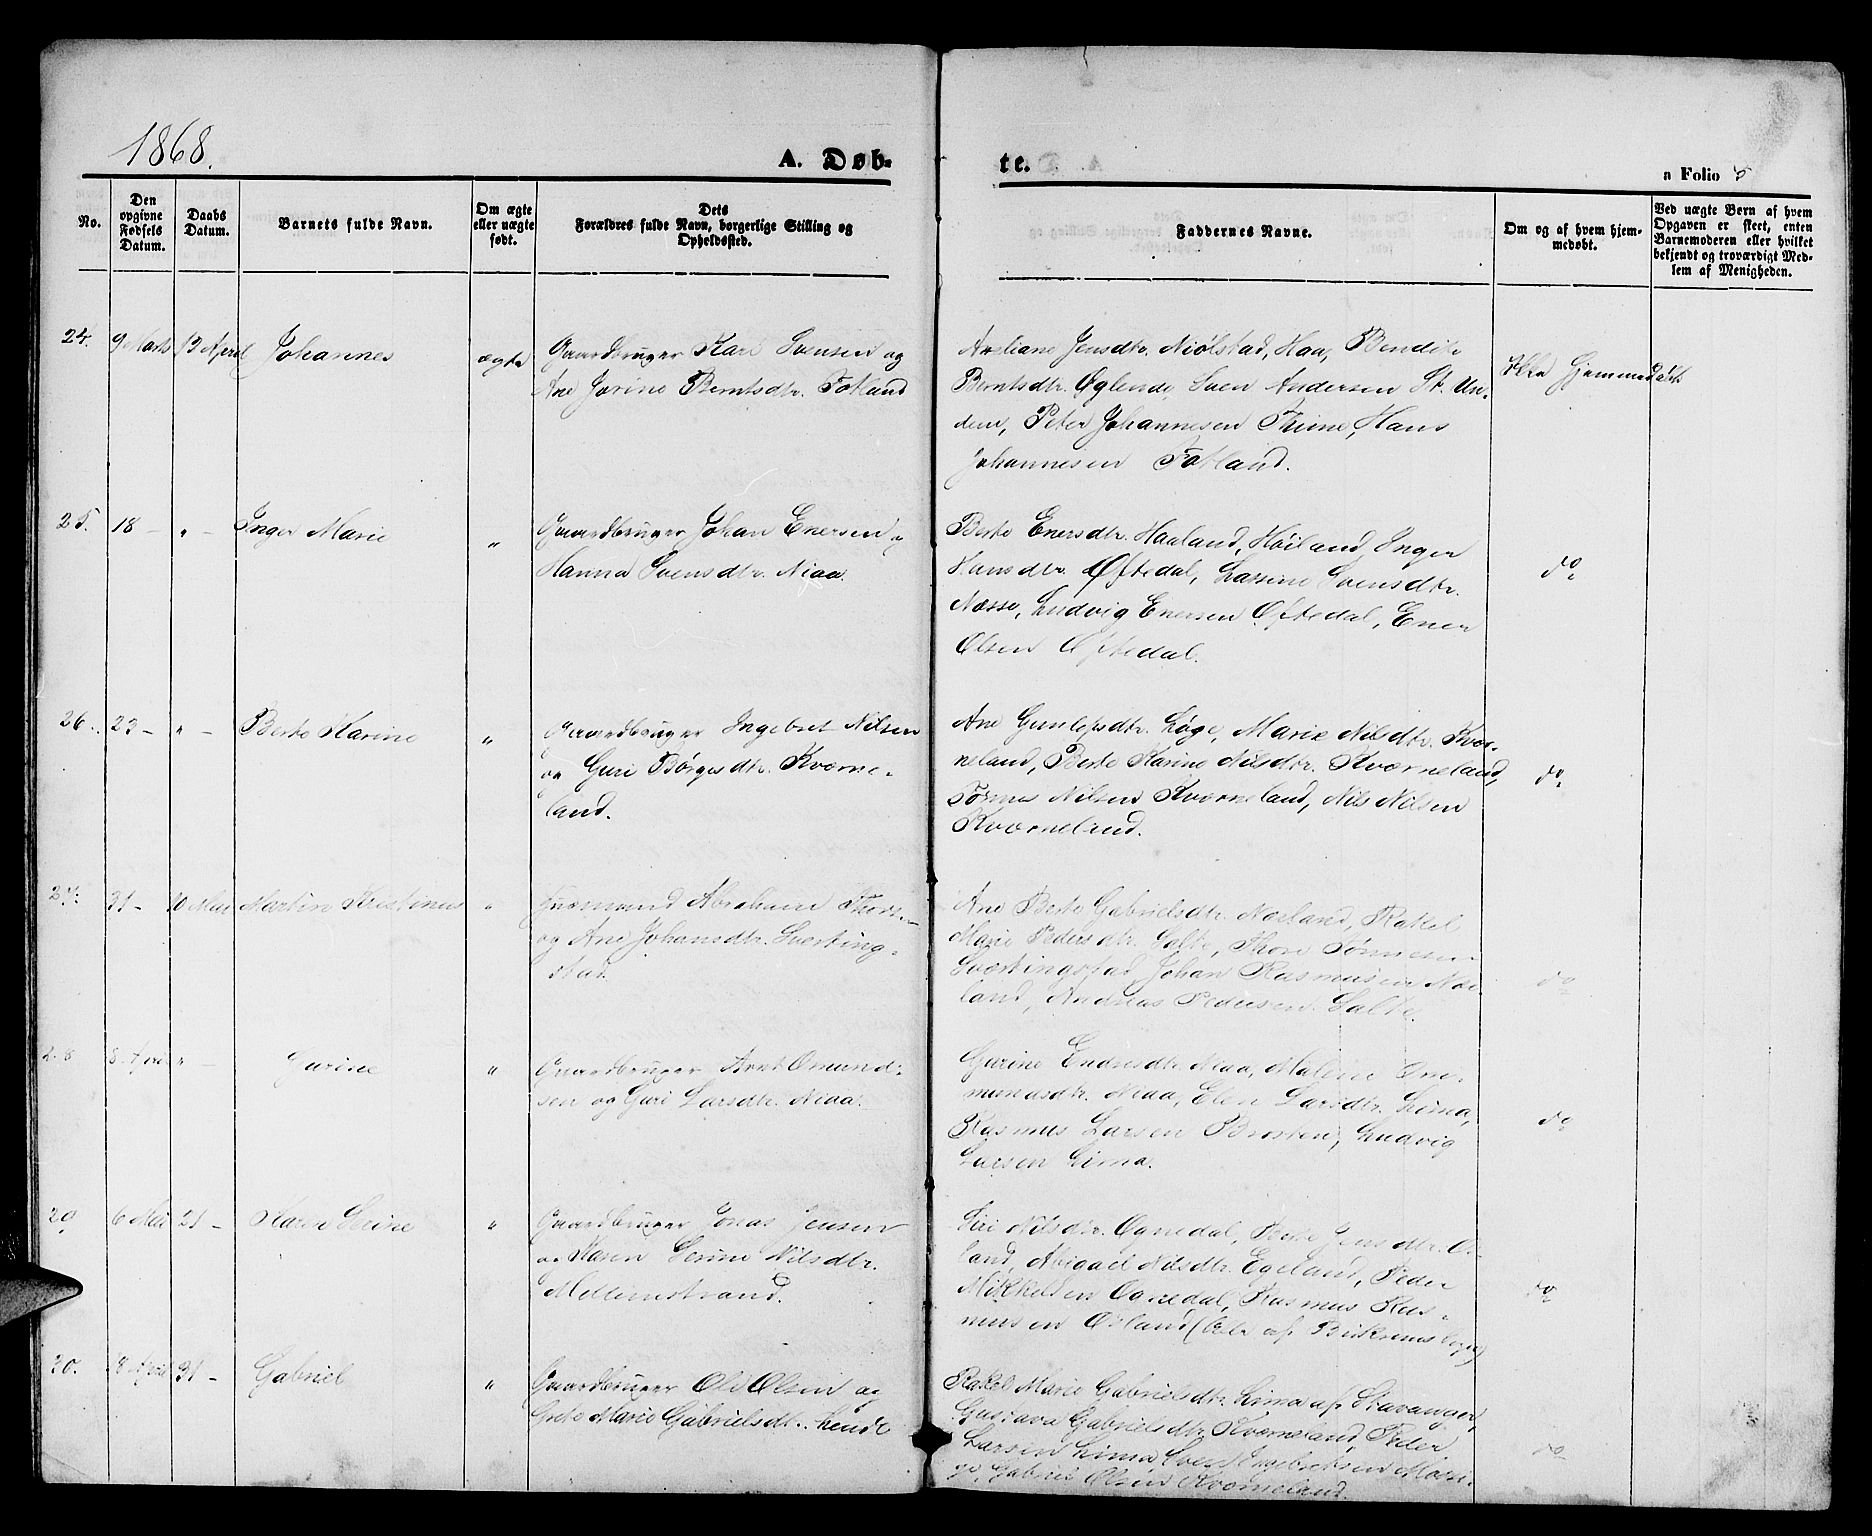 1868.
A. Døb-
te.
a Folio 5
No.
Den opgivne Fødsels Datum.
Daabs Datum.
Barnets fulde Navn.
Om ægte eller uægte født.
Dets Forældres fulde Navn, borgerlige Stilling og Opholdssted.
Faddernes Navne.
Om og af hvem hjem-
medøbt.
Ved uægte Børn af hvem
Opgaven er skeet, enten
Barnemoderen eller hvilket
bekjendt og troværdigt Med-
lem af Menigheden.
24. 9 Marts 13 April Johannes ægte
Gaardbruger Kari Svensen og
Ane Jorine Berntsdtr. Fotland
Axeliane Jensdtr. Niølstad, Haa, Bendik
Berntsdtr. Øglende, Sven Andersen St. Un-
dem, Peter Johannesen Thime, Hans
Johannesen Fotland.
Ikke Hjemmedøbt
25. 18 - " - Inger Marie "
Gaardbruger Johan Enersen og
Hanna Svensdtr. Niaa.
Berte Enersdtr. Haaland, Høiland, Inger
Hansdtr. Øftedal, Larsine Svensdtr.
Næsse, Ludvig Enersen Øftedal, Ener
Olsen Øftedal.
do
26. 23 - " - Berte Karine "
Gaardbruger Ingebret Nilsen
og Guri Børgesdtr. Kværne-
land.
Ane Gunlefsdtr. Løge, Marie Nilsdtr. Kvær-
neland, Berte Karine Nilsdtr. Kværneland,
Tønnes Nilsen Kværneland, Nils Nilsen
Kværneland.
do
27. 31 - 10 Mai Martin Kristinus "
Huusmand Abraham Thors-
og Ane Johansdtr. Sværting-
stad.
Ane Berte Gabrielsdtr. Næeland, Rakel
Marie Pedersdtr. Salte, Thore Tønnesen
Sværtingstad, Johan Rasmusen Næe-
land, Andreas Pedersen Salte.
do
28 8 April " - Gurine "
Gaardbruger Arnt Omund-
sen og Guri Larsdtr. Niaa.
Gurine Endresdtr. Niaa, Malene Om-
mundsdtr. Niaa, Elen Larsdtr. Lima,
Rasmus Larsen Brosten, Ludvig
Larsen Lima.
do
29 6 Mai 21 - Karen Serine "
Gaardbruger Jonas Jensen
og Karen Serine Nilsdtr.
Mellemstrand.
Siri Nilsdtr. Ognedal, Berte Jensdtr. O-
land, Abigael Nilsdtr. Egeland, Peder
Mikkelsen Ognedal, Rasmus Ras-
musen Oxland (Alle af Birkrems Sogn)
do
30. 8 April 31 - Gabriel "
Gaardbruger Ole Olsen og
Grete Marie Gabrielsdtr. Lende
Rakel Marie Gabrielsdtr. Lima af Stavanger,
Gustava Gabrielsdtr. Kværneland, Peder
Larsen Lima, Sven Ingebretsen Mossi-
ge, Gabriel Olsen Kværneland.
do